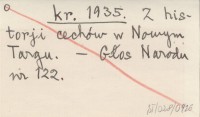 kr. 1935. Z his-
torji cechów w Nowym
Targu. — Głos Narodu
nr 122.